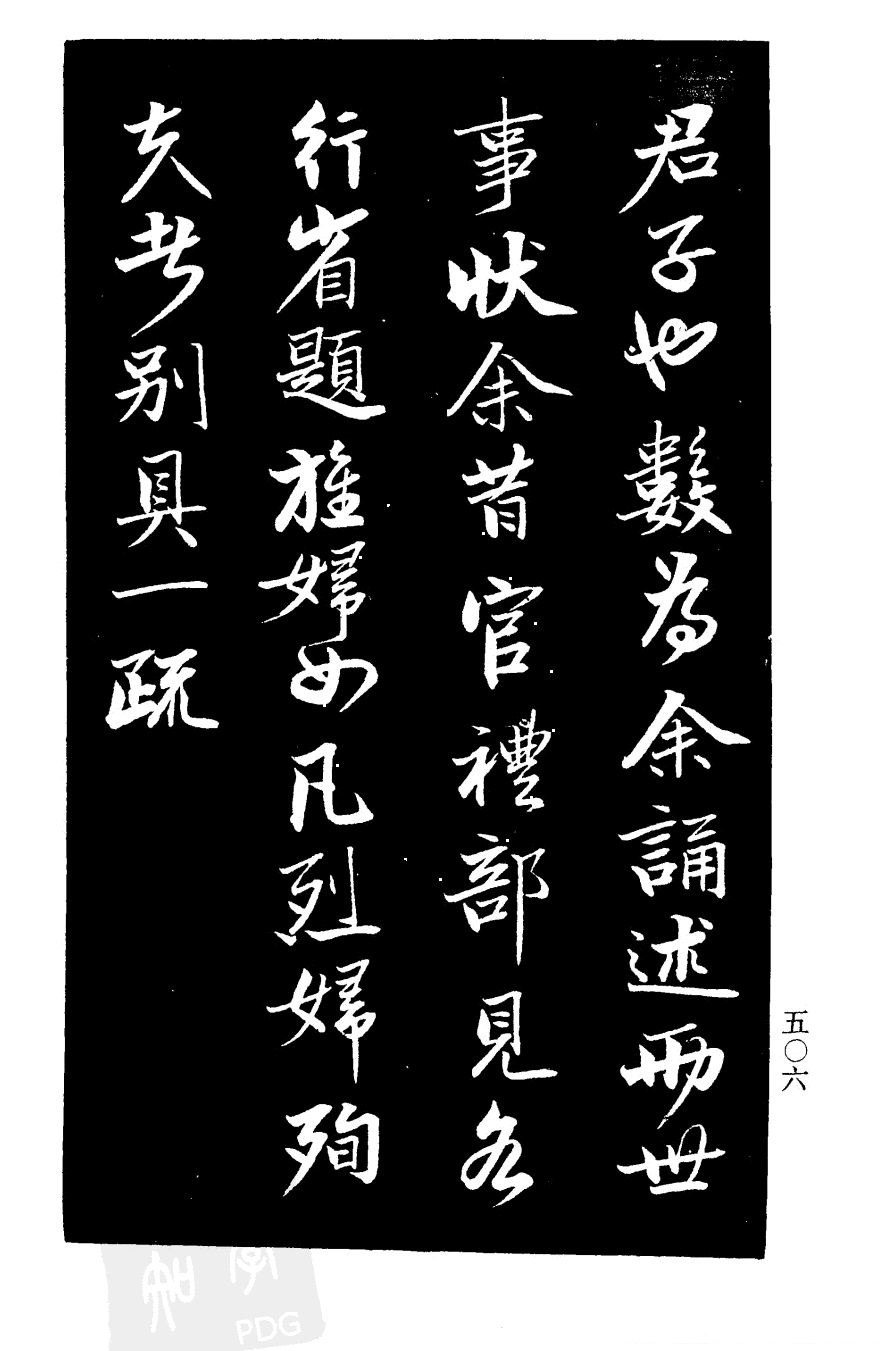 君子也數為余誦述兩世
事狀余昔官禮部見各
行省題旌婦女凡烈婦殉
夫者別具一疏
五〇六
PDG